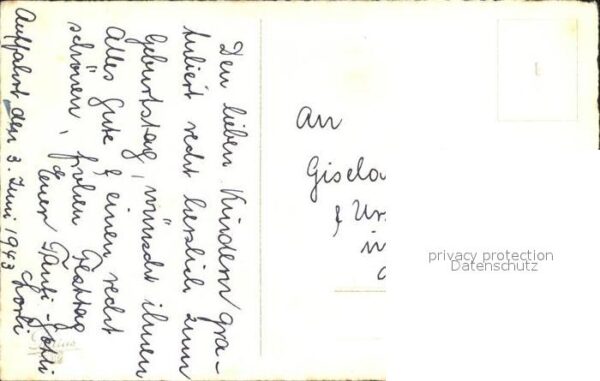 Den lieben Kindern gra-
tuliert recht herzlich zum
Geburtstag, wünscht ihnen
Alles Gute & einen recht
schönen, frohen Festtag
Euer Tanti-Gotti
Lorli
Auffahrt den 3. Juni 1943
An
Gisela
& Urs
in
privacy protection
Datenschutz